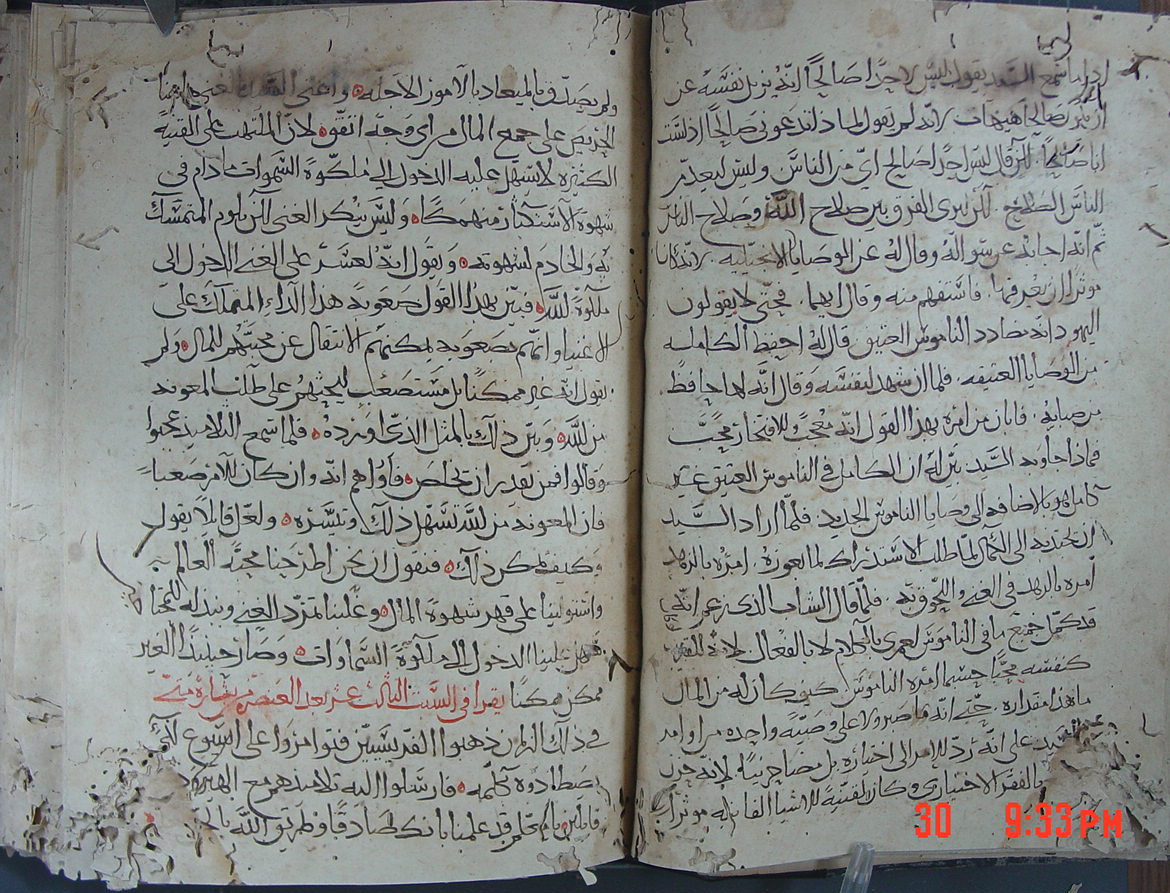 السيد يقول ليس احدًا صالحًا انه يزيل نفسه عن
ان يكون صالحًا هيهات لانه لم يقول لماذا تدعوني صالحًا اذ لست
انا صالحًا لكن قال ليس احدًا صالح اي من الناس وليس ليعدم
الناس الصلاح لكن ليرى الفرق بين صلاح الله وصلاح الناس
ثم انه اجابه عن سواله وقال له عن الوصايا الانجيليه لانه كان
موثرًا ان يعرفها فاستفهم منه وقال ايهما فحتى لا يقولون
اليهود انه يضادد الناموس العتيق قال له احفظ الكامله
من الوصايا العتيقه فلما ان شهد لنفسه وقال انه لها حافظ
من صبايه فابان من امره بهذا القول انه معجب وللافتخار محب
فماذا جاوبه السيد بين له ان الكامل في الناموس العتيق غير
كامل هو بالاضافه الى وصايا الناموس الجديد فلما اراد السيد
ان يجذبه الى الكمال لما طلب الاستدراك لما اعوزه امره بالزهد
امره بالزهد في الغنى واللحوق به فلما قال الشاب الذي زعم انه
قد كمل جميع ما في الناموس لعمري بالكلام لا بالفعال لانه للقريب
كنفسه محبًا حسبما امره الناموس كيف كان له من المال
ما هذا مقداره حتى انه ما صبر ولا على وصيه واحده من اوامر
السيد على انه رد الامر الى اختياره بل مضا حزينًا لانه حزن
بالفقر الاختياري وكان لقنية الاشيا الفانيه موثرًا
ولم يصدق بالميعاد بالامور الاجله واعني الغني
الحريص على جمع المال من اي وجه اتفق لان الملتهب على القنيه
الكثيره لا يسهل عليه الدخول الى ملكوة السموات ما دام في
شهوة الاستكثار منهمكًا وليس ينكر الغني لكن يلوم المتمسك
به والخادم لشهوته ويقول انه لعسر على الغني الدخول الى
ملكوة الله فبين بهذا القول صعوبة هذا الداء المتملك على
الاغنيا وانهم بصعوبه يمكنهم الانتقال عن محبتهم للمال ولم
يقول انه غير ممكنًا بل مستصعب ليحثهم على طلب المعونه
من الله وبين ذلك بالمثل الذي اورده فلما سمع التلاميذ عجبوا
وقالوا فمن يقدر ان يخلص فاواهم انه وان كان الامر صعبًا
فان المعونه من الله تسهل ذلك وتيسره ولعل قايلًا يقول
وكيف يمكن ذلك فنقول ان نحن اطرحنا محبة العالم
واستولينا على قهر شهوة المال وعلمنا تمرد الغنى وبذله للمحتاج
فهين علينا الدخول الى ملكوة السماوات وصار حينيذًا الغير
ممكن ممكنًا يقرا في السبت الثالث عشر بعد العنصره من بشارة متى
في ذلك الزمان ذهبوا القريسيين فتوامروا على ايسوع لكي
يصطادوه بكلمه فارسلوا اليه تلاميذهم مع الهيرودسيين
قايلين يا معلم قد علمنا بانك صادقًا وطريق الله بالحق
30 9:33PM